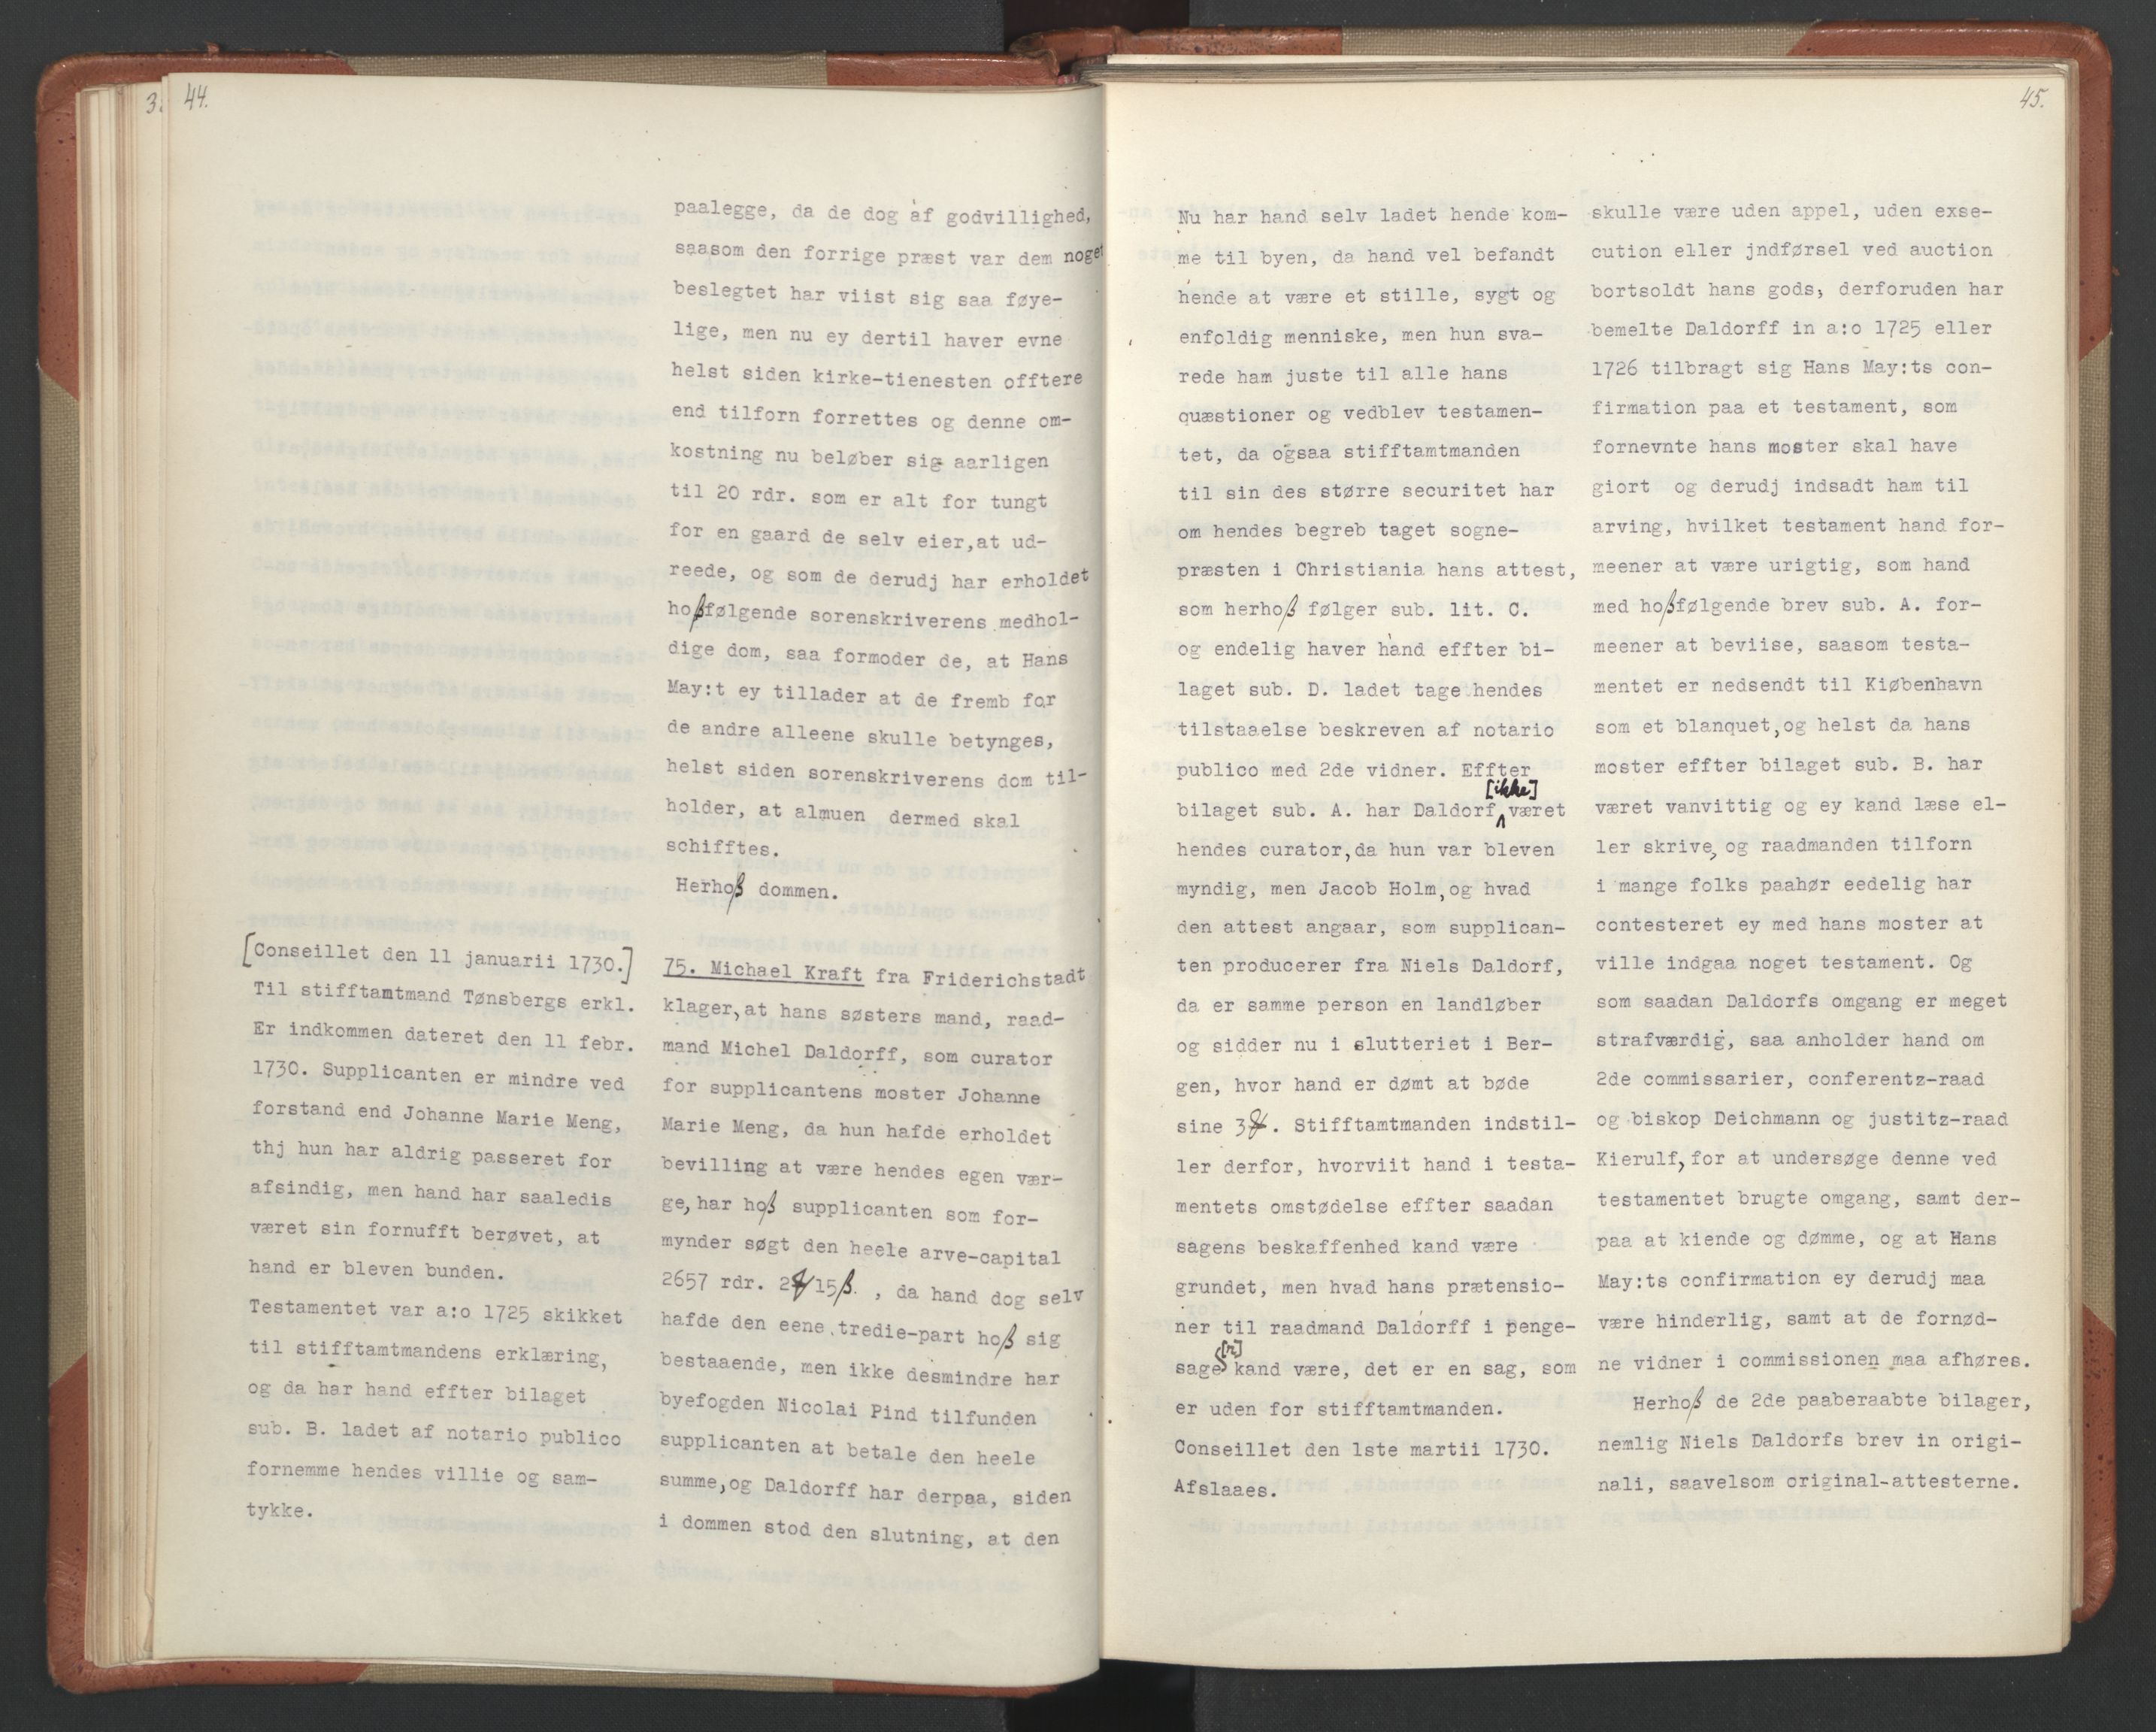 3.
44.
paalegge, da de dog af godvillighed,
saasom den forrige præst var dem noget
beslegtet har viist sig saa føye-
lige, men nu ey dertil haver evne
helst siden kirke-tienesten offtere
end tilforn forrettes og denne om-
kostning nu beløber sig aarligen
til 20 rdr. som er alt for tungt
for en gaard de selv eier, at ud-
reede, og som de derudj har erholdet
hoßfølgende sorenskriverens medhol-
dige dom, saa formoder de, at Hans
May:t ey tillader at de fremb for
de andre alleene skulle betynges,
helst siden sorenskriverens dom til-
holder, at almuen dermed skal
schifftes.
Herhoß dommen.
[Conseillet den 11 januarii 1730.]
Til stifftamtmand Tønsbergs erkl.
Er indkommen dateret den 11 febr.
1730. Supplicanten er mindre ved
forstand end Johanne Marie Meng,
thj hun har aldrig passeret for
afsindig, men hand har saaledis
været sin fornufft berøvet, at
hand er bleven bunden.
Testamentet var a:o 1725 skikket
til stifftamtmandens erklæring,
og da har hand effter bilaget
sub. B. ladet af notario publico
fornemme hendes villie og sam-
tykke.
75. Michael Kraft fra Friderichstadt
klager, at hans søsters mand, raad-
mand Michel Daldorff, som curator
for supplicantens moster Johanne
Marie Meng, da hun hafde erholdet
bevilling at være hendes egen vær-
ge, har hoß supplicanten som for-
mynder søgt den heele arve-capital
2657 rdr. 2 15 ß. , da hand dog selv
hafde den eene tredie-part hoß sig
bestaaende, men ikke desmindre har
byefogden Nicolai Pind tilfunden
supplicanten at betale den heele
summe, og Daldorff har derpaa, siden
i dommen stod den slutning, at den
45.
Nu har hand selv ladet hende kom-
me til byen, da hand vel befandt
hende at være et stille, sygt og
enfoldig menniske, men hun sva-
rede ham juste til alle hans
quæstioner og vedblev testamen-
tet, da ogsaa stifftamtmanden
til sin des større securitet har
om hendes begreb taget sogne-
præsten i Christiania hans attest,
som herhoß følger sub. lit. C.
og endelig haver hand effter bi-
laget sub. D. ladet tage hendes
tilstaaelse beskreven af notario
publico med 2de vidner. Effter
bilaget sub. A. har Daldorf [ikke] været
hendes curator, da hun var bleven
myndig, men Jacob Holm, og hvad
den attest angaar, som supplican-
ten producerer fra Niels Daldorf,
da er samme person en landløber
og sidder nu i slutteriet i Ber-
gen, hvor hand er dømt at bøde
sine 3 . Stifftamtmanden indstil-
ler derfor, hvorviit hand i testa-
mentets omstødelse effter saadan
sagens beskaffenhed kand være
grundet, men hvad hans prætensio-
ner til raadmand Daldorff i penge-
sage[r] kand være, det er en sag, som
er uden for stifftamtmanden.
Conseillet den 1ste martii 1730.
Afslaaes.
skulle være uden appel, uden exse-
cution eller jndførsel ved auction
bortsoldt hans gods, derforuden har
bemelte Daldorff in a:o 1725 eller
1726 tilbragt sig Hans May:ts con-
firmation paa et testament, som
fornevnte hans moster skal have
giort og derudj indsadt ham til
arving, hvilket testament hand for-
meener at være urigtig, som hand
med hoßfølgende brev sub. A. for-
meener at beviise, saasom testa-
mentet er nedsendt til Kiøbenhavn
som et blanquet, og helst da hans
moster effter bilaget sub. B. har
været vanvittig og ey kand læse el-
ler skrive, og raadmanden tilforn
i mange folks paahør eedelig har
contesteret ey med hans moster at
ville indgaa noget testament. Og
som saadan Daldorfs omgang er meget
strafværdig, saa anholder hand om
2de commissarier, conferentz-raad
og biskop Deichmann og justitz-raad
Kierulf, for at undersøge denne ved
testamentet brugte omgang, samt der-
paa at kiende og dømme, og at Hans
May:ts confirmation ey derudj maa
være hinderlig, samt at de fornød-
ne vidner i commissionen maa afhøres.
Herhoß de 2de paaberaabte bilager,
nemlig Niels Daldorfs brev in origi-
nali, saavelsom original-attesterne.